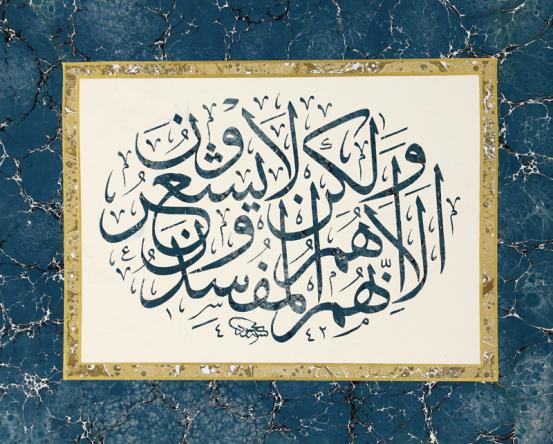 الا انهم هم المفسدون ولكن لا يشعرون